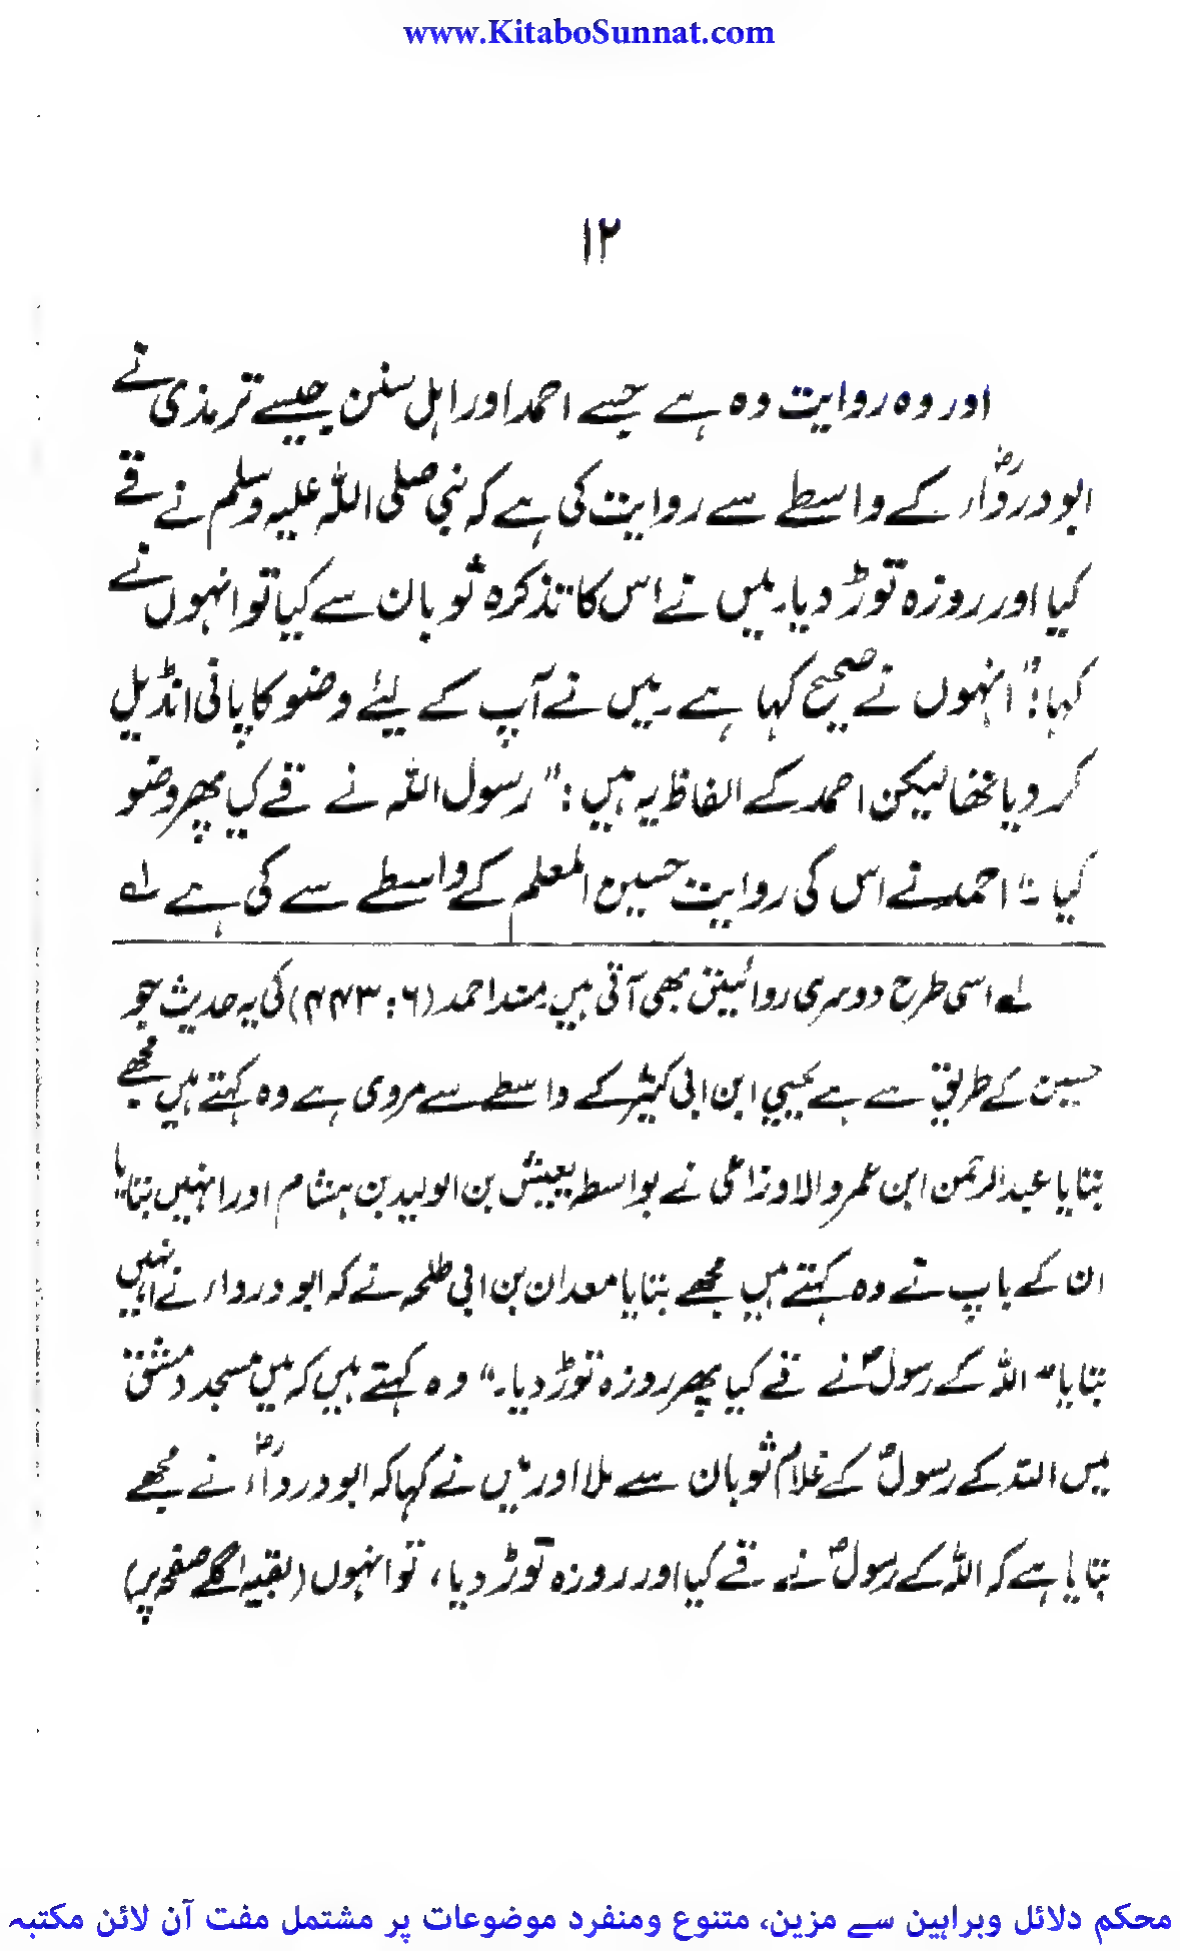 www.KitaboSunnat.com
۱۲
اور وہ روایت وہ ہے جسے احمد اور اہل سنن جیسے ترمذی نے
ابودرداؓء کے واسطے سے روایت کی ہے کہ نبی صلی اللہ علیہ وسلم نے قے
کیا اور روزہ توڑ دیا۔ میں نے اس کا تذکرہ ثوبان سے کیا تو انہوں نے
کہا: "انہوں نے صحیح کہا ہے۔ میں نے آپ کے لیئے وضو کا پانی انڈیل
کر دیا تھا لیکن احمد کے الفاظ یہ ہیں: "رسول اللہ نے قے کی پھر وضو
کیا۔" احمد نے اس کی روایت حسین المعلم کے واسطے سے کی ہے لہ
لہ اسی طرح دوسری روائیتں بھی آتی ہیں۔ مسند احمد (۶: ۴۴۳) کی یہ حدیث جو
حسین کے طریق سے ہے یحییٰ ابن ابی کثیر کے واسطے سے مروی ہے وہ کہتے ہیں مجھے
بتایا عبدالرحمن ابن عمرو الاوزاعی نے بواسطہ یعیش بن الولید بن ہشام اور انہیں بتایا
ان کے باپ نے وہ کہتے ہیں مجھے بتایا معدان بن ابی طلحہ نے کہ ابو درداء نے انہیں
بتایا "اللہ کے رسولؐ نے قے کیا پھر روزہ توڑ دیا۔" وہ کہتے ہیں کہ میں مسجد دمشق
میں اللہ کے رسولؐ کے غلام ثوبان سے ملا اور میں نے کہا کہ ابودرداؓء نے مجھے
بتایا ہے کہ اللہ کے رسولؐ نے قے کیا اور روزہ توڑ دیا، تو انہوں (بقیہ اگلے صفحہ پر)
محکم دلائل وبراہین سے مزین، متنوع ومنفرد موضوعات پر مشتمل مفت آن لائن مکتبہ